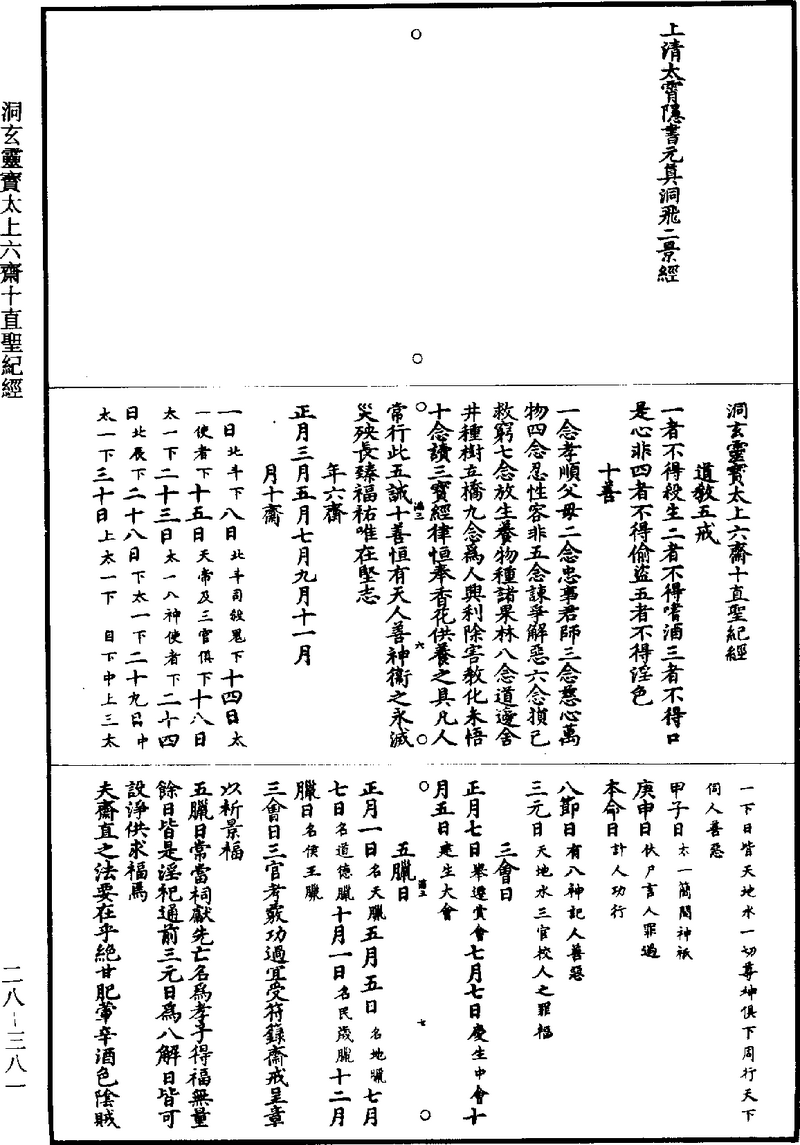 上清太霄隱書元真洞飛二景經
洞玄靈寶太上六齋十直聖紀經
道教五戒
一者不得殺生二者不得嗜酒三者不得口
是心非四者不得偷盜五者不得淫色
十善
一念孝順父母二念忠事君師三念慈心萬
物四念忍性容非五念諫爭解惡六念損己
救窮七念放生養物種諸果林八念道邊舍
井種樹立橋九念為人興利除害教化未悟
十念讀三寶經律恒奉香花供養之具凡人
常行此五誡十善恒有天人善神衛之永滅
災殃長臻福祐唯在堅志
年六齋
正月三月五月七月九月十一月
月十齋
一日北斗下八日北斗司殺鬼下十四日太
一使者下十五日天帝及三官俱下十八日
太一下二十三日太一八神使者下二十四
日北辰下二十八日下太一下二十九日中
太一下三十日上太一下 自下中上三太
一下日皆天地水一切尊神俱下周行天下
伺人善惡
甲子日太一簡閱神祇
庚申日伏尸言人罪過
本命日計人功行
八節日有八神記人善惡
三元日天地水三官校人之罪福
三會日
正月七日舉遷賞會七月七日慶生中會十
月五日建生大會
五臘日
正月一日名天臘五月五日名地臘七月
七日名道德臘十月一日名民歲臘十二月
臘日名侯王臘
三會日三官考覈功過宜受符籙齋戒呈章
以祈景福
五臘日常當祠獻先亡名為孝子得福無量
餘日皆是淫祀通前三元日為八解日皆可
設淨供求福焉
夫齋直之法要在乎絕甘肥葷辛酒色陰賊
洞玄靈寶太上六齋十直聖紀經
二八-三八一